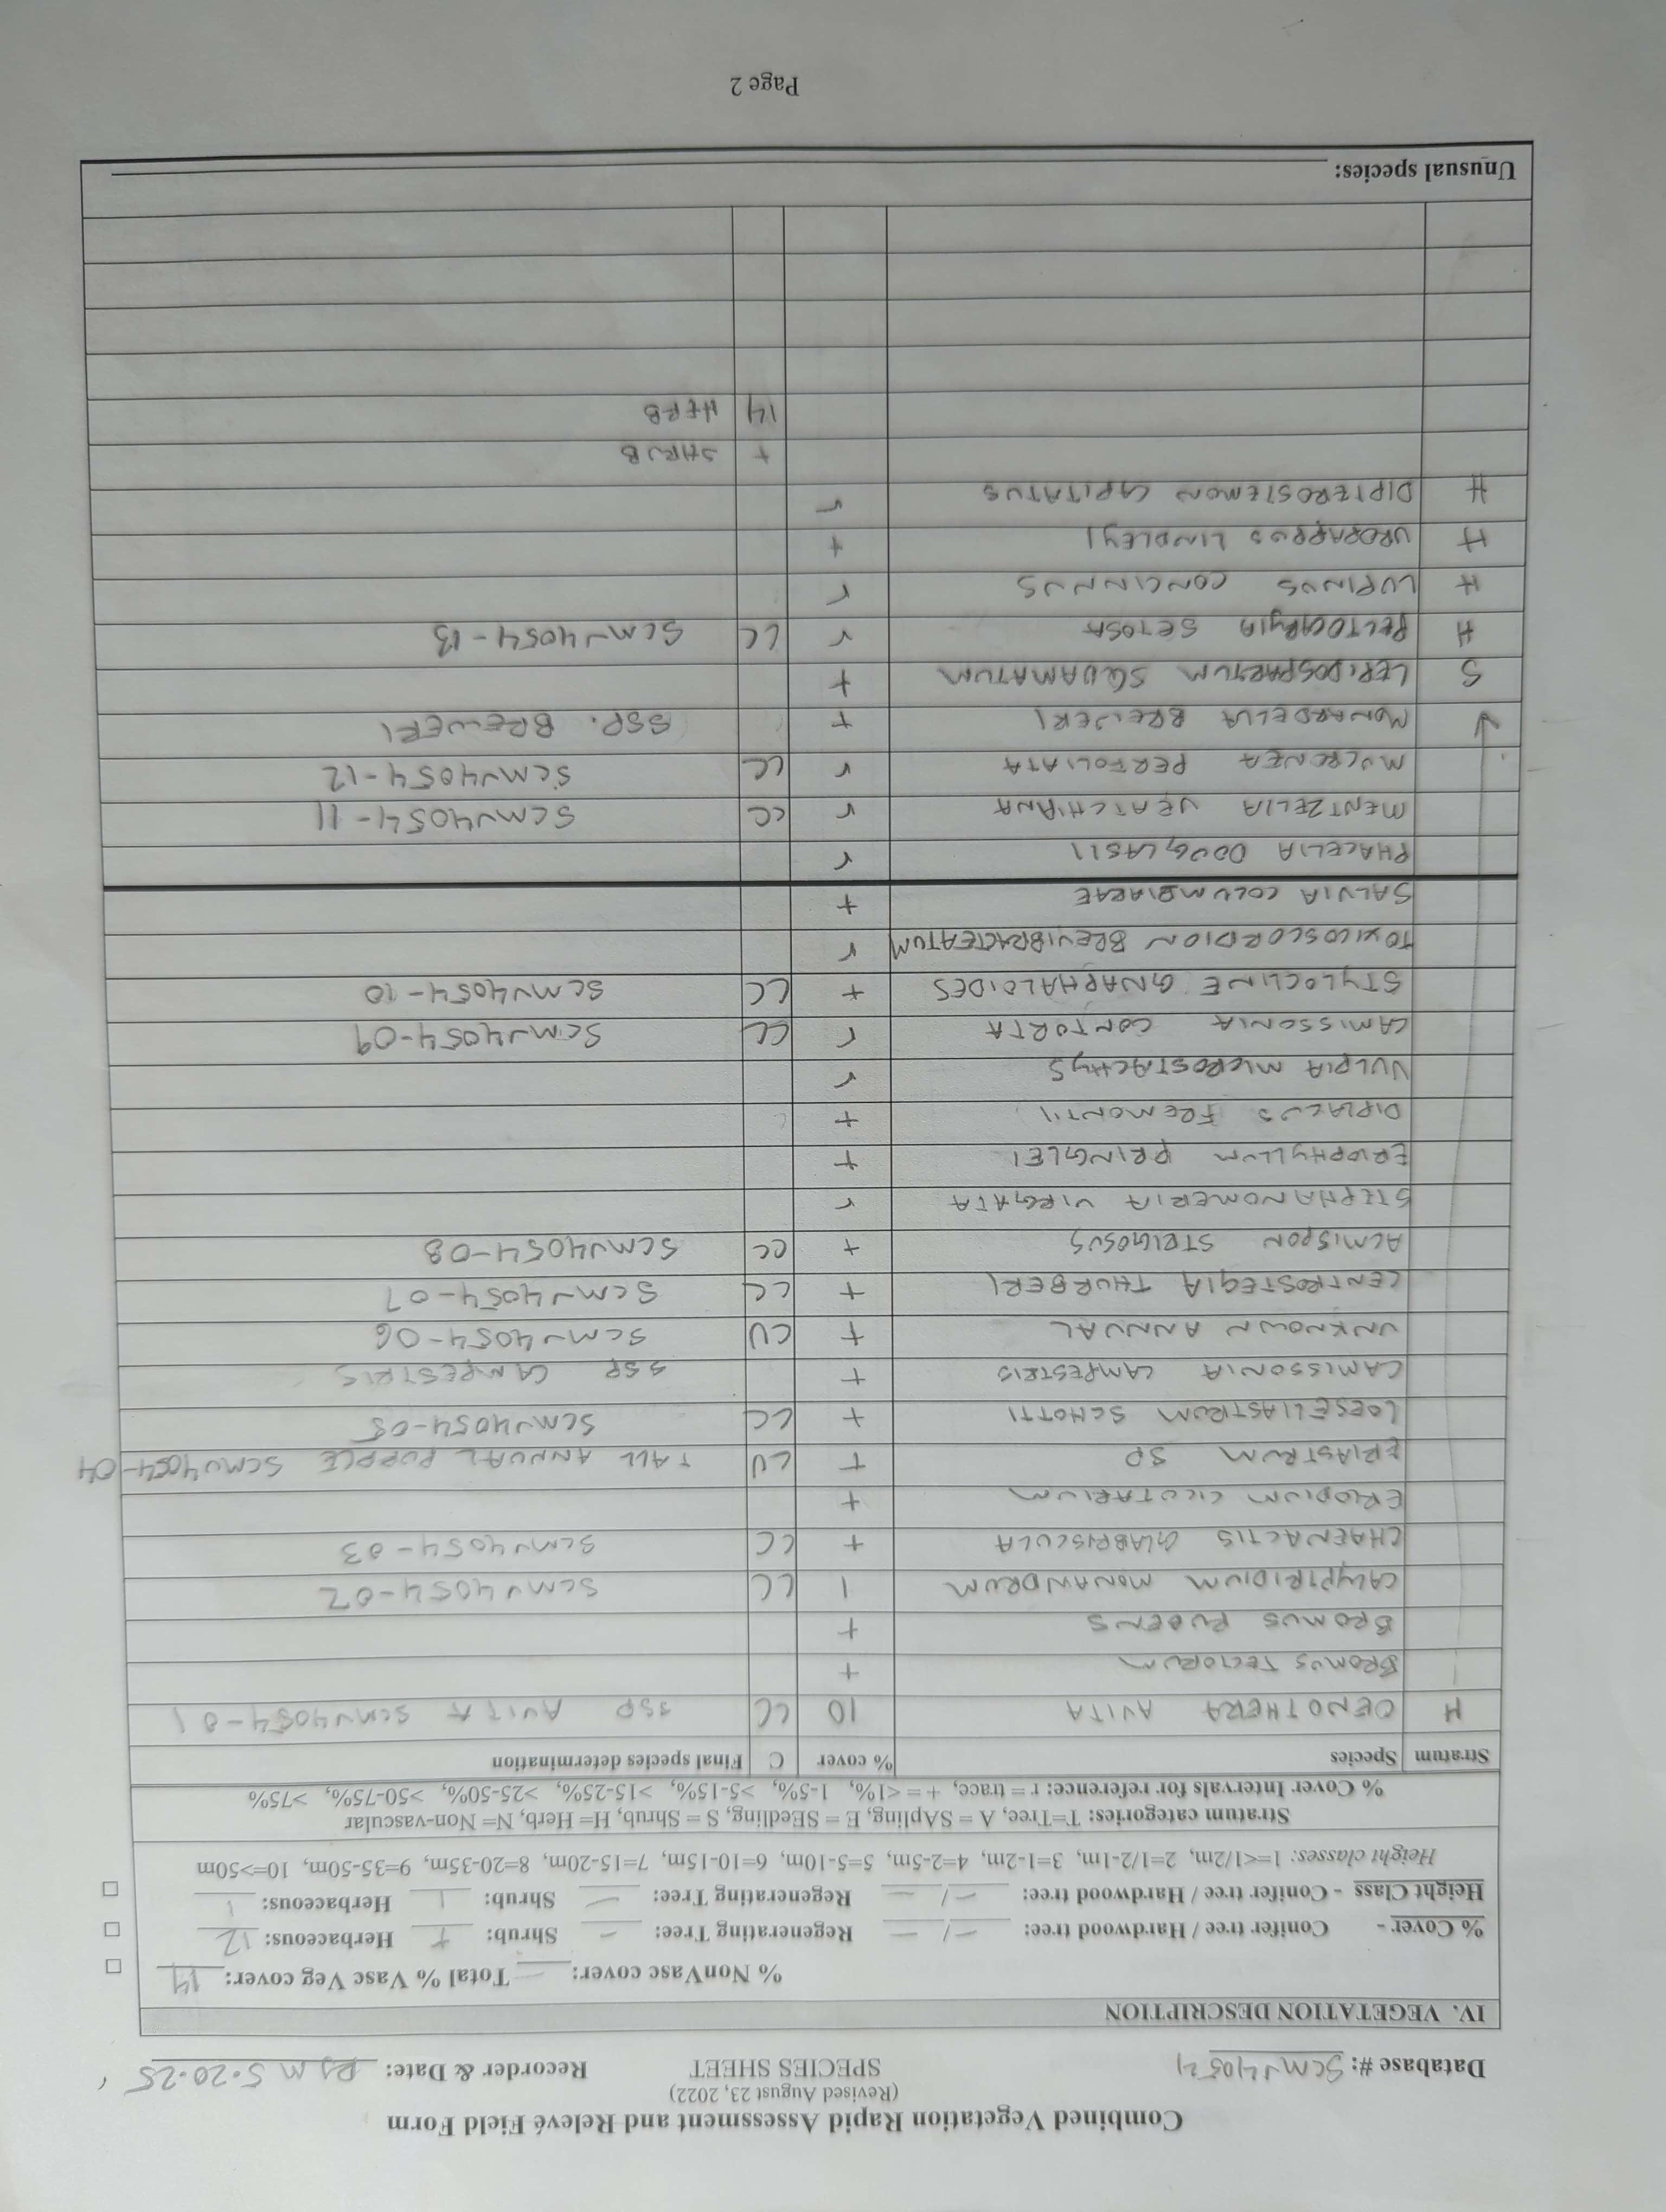 Combined Vegetation Rapid Assessment and Relevé Field Form
(Revised August 23, 2022)
Database #: SCMV4054 SPECIES SHEET Recorder & Date: RJM 5.20.25
IV. VEGETATION DESCRIPTION
% NonVasc cover: — Total % Vasc Veg cover: 14
% Cover - Conifer tree / Hardwood tree: — / — Regenerating Tree: — Shrub: + Herbaceous: 12
Height Class - Conifer tree / Hardwood tree: — / — Regenerating Tree: — Shrub: 1 Herbaceous: 1
Height classes: 1=<1/2m, 2=1/2-1m, 3=1-2m, 4=2-5m, 5=5-10m, 6=10-15m, 7=15-20m, 8=20-35m, 9=35-50m, 10=>50m
Stratum categories: T=Tree, A = SApling, E = SEedling, S = Shrub, H= Herb, N= Non-vascular
% Cover Intervals for reference: r = trace, + = <1%, 1-5%, >5-15%, >15-25%, >25-50%, >50-75%, >75%
Stratum Species % cover C Final species determination
H OENOTHERA AVITA 10 CC SSP AVITA SCMV4054-01
BROMUS TECTORUM +
BROMUS RUBENS +
CALYPTRIDIUM MONANDRUM 1 CC SCMV4054-02
CHAENACTIS GLABRISCULA + CC SCMV4054-03
ERODIUM CICUTARIUM +
ERIASTRUM SP + CU TALL ANNUAL PURPLE SCMV4054-04
LOESELIASTRUM SCHOTTI + CC SCMV4054-05
CAMISSONIA CAMPESTRIS + SSP CAMPESTRIS
UNKNOWN ANNUAL + CU SCMV4054-06
CENTROSTEGIA THURBERI + CC SCMV4054-07
ACMISPON STRIGOSUS + CC SCMV4054-08
STEPHANOMERIA VIRGATA r
ERIOPHYLLUM PRINGLEI +
DIPLACUS FREMONTII +
VULPIA MICROSTACHYS r
CAMISSONIA CONTORTA r CC SCMV4054-09
STYLOCLINE GNAPHALOIDES + CC SCMV4054-10
TOXICOSCORDION BREVIBRACTEATUM r
SALVIA COLUMBARIAE +
PHACELIA DOUGLASII r
MENTZELIA VEATCHIANA r CC SCMV4054-11
MUCRONEA PERFOLIATA r CC SCMV4054-12
MONARDELLA BREWERI + SSP. BREWERI
S LEPIDOSPARTUM SQUAMATUM +
H PECTOCARYA SETOSA r CC SCMV4054-13
H LUPINUS CONCINNUS r
H UROPAPPUS LINDLEYI +
H DIPTEROSTEMON CAPITATUS r
+ SHRUB
14 HERB
Unusual species:
Page 2